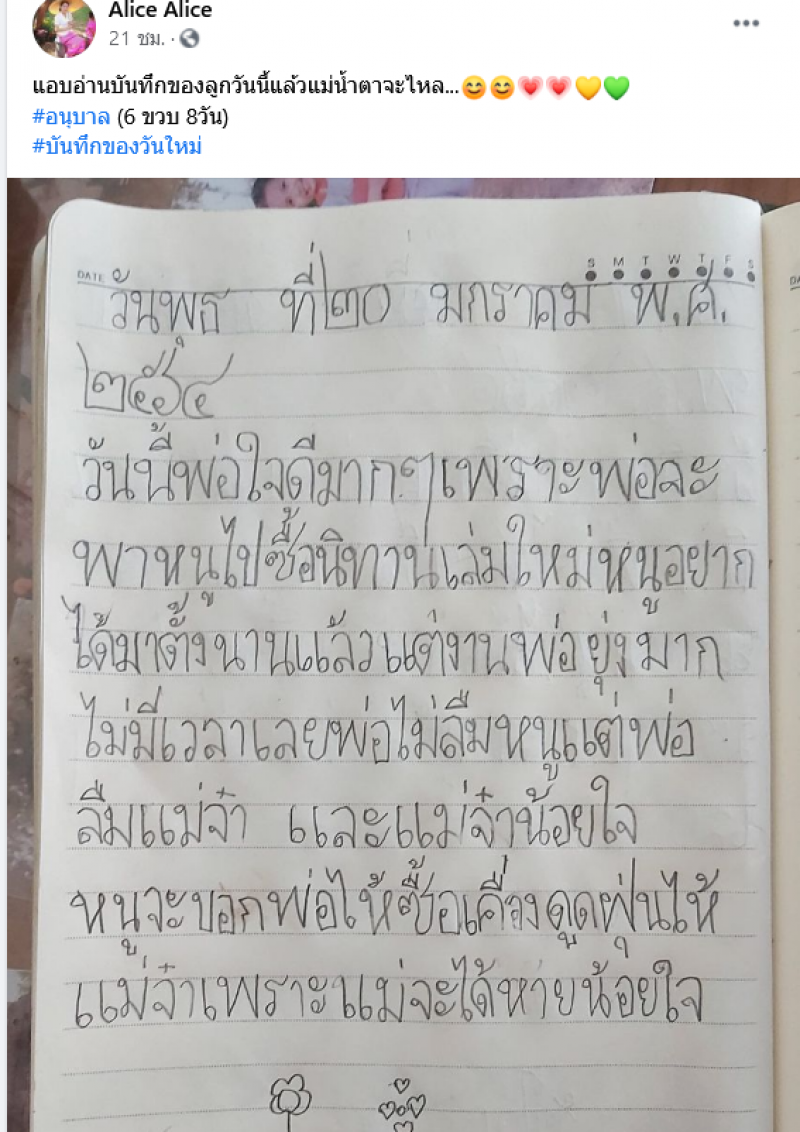 Alice Alice
21 ชม.
แอบอ่านบันทึกของลูกวันนี้แล้วแม่น้ำตาจะไหล...😊😊💗💗💛💚
#อนุบาล (6 ขวบ 8วัน)
#บันทึกของวันใหม่
DATE S M T W T F S
วันพุธ ที่๒๐ มกราคม พ.ศ.
๒๕๖๔
วันนี้พ่อใจดีมากๆเพราะพ่อจะ
พาหนูไปซื้อนิทานเล่มใหม่หนูอยาก
ได้มาตั้งนานแล้วแต่งานพ่อยุ่งมาก
ไม่มีเวลาเลยพ่อไม่ลืมหนูแต่พ่อ
ลืมแม่จ๋า และแม่จ๋าน้อยใจ
หนูจะบอกพ่อให้ซื้อเครื่องดูดฝุ่นให้
แม่จ๋าเพราะแม่จะได้หายน้อยใจ